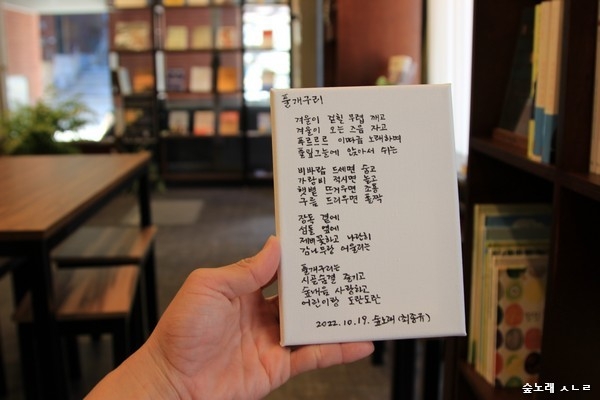 풀개구리
겨울이 걷힐 무렵 깨고
겨울이 오는 즈음 자고
폭르르르 이따금 노래하며
풀잎그늘에 앉아서 쉬는
비바람 드세면 숨고
가랑비 적시면 놀고
햇볕 뜨거우면 조용
구름 드리우면 폴짝
장독 곁에
섬돌 옆에
제비꽃하고 나란히
감나무랑 어울리는
풀개구리는
시골숨결 즐기고
숲내음 사랑하고
어린이랑 도란도란
2022.10.19. 숲노래 (최종규)
숲노래 ㅅㄴㄹ